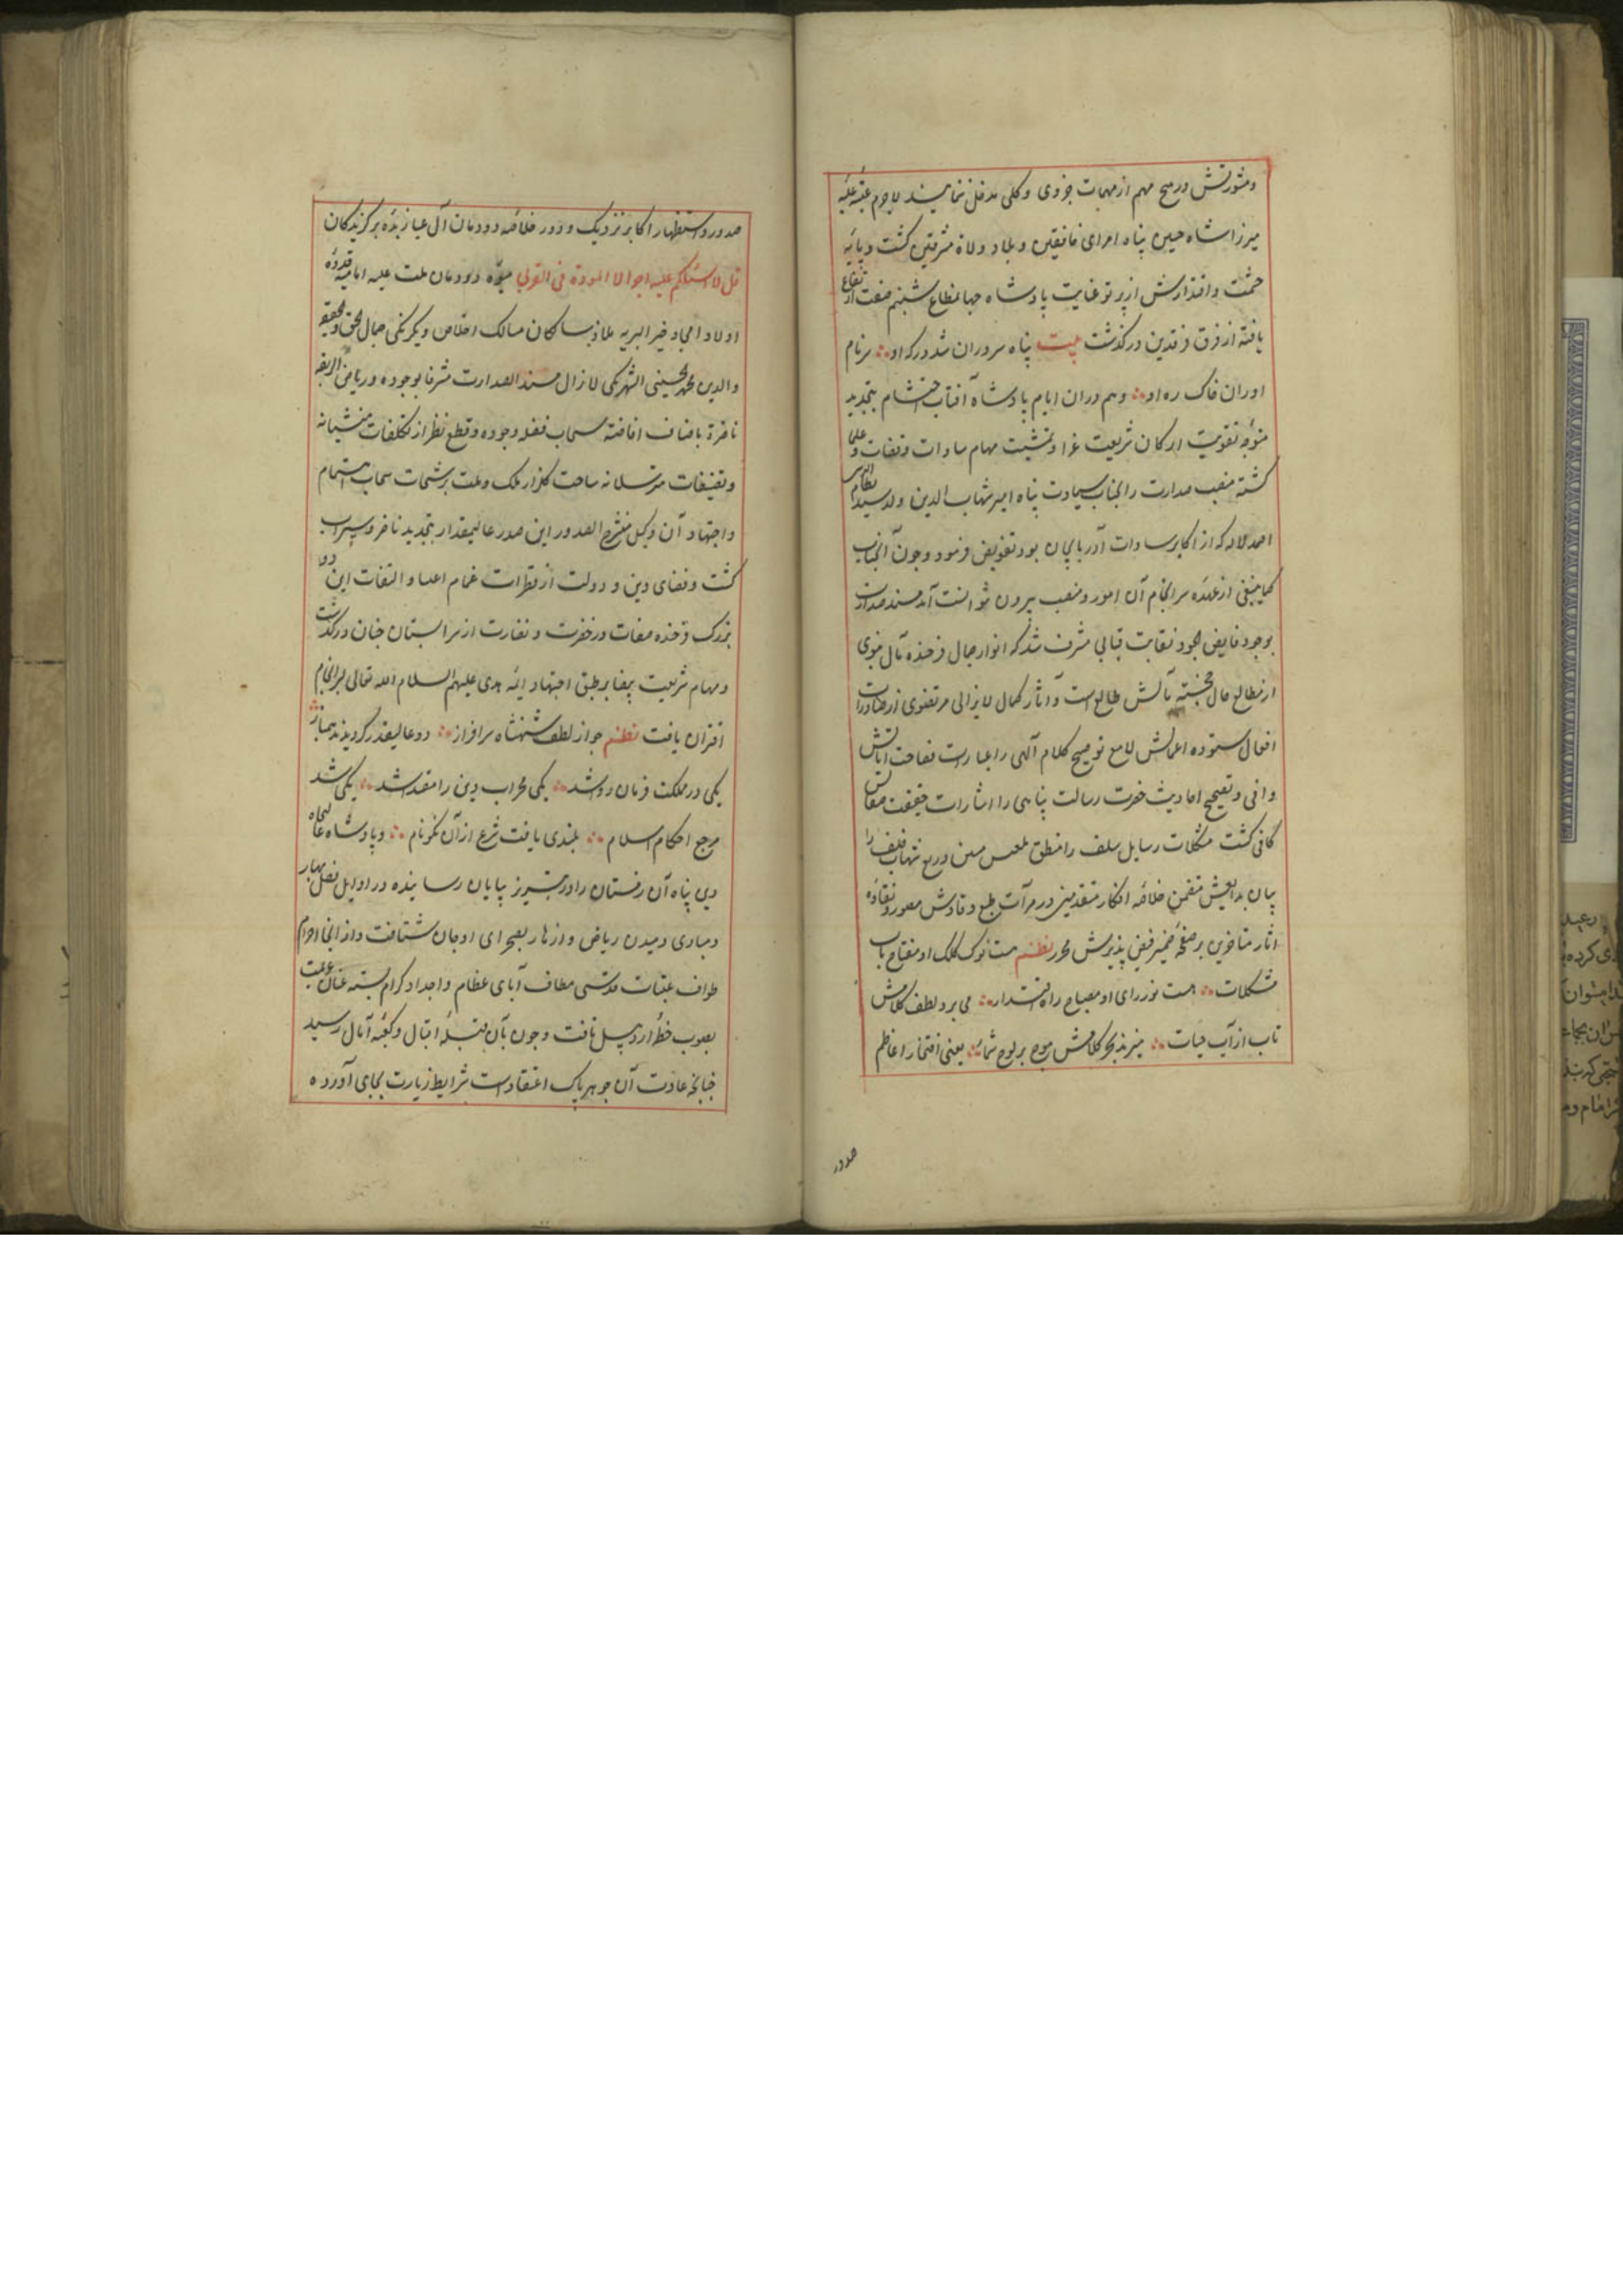 ومشورتش در هیچ مهم از مهمات جزوی و کلی مدخل ننمایند لاجرم عتبه علیه
میرزا شاه حسین پناه امرای خافقین و ملاذ ولاة مشرقین کشت و پایه
حشمت و اقتدارش از پرتو عنایت پادشاه جهانمطاع شبنم صفت ارتفاع
یافته از فرق فرقدین درکذشت بیت پناه سروران شد درکه او سرنام
اوران خاک ره او وهم دران ایام پادشاه آفتاب احتشام بتجدید
متوجه تقویت ارکان شریعت غرا و تمشیت مهام سادات و نقبات و علما
کشته منصب صدارت را بجناب سیادت پناه امیر شهاب الدین ولد سید نظام الدین
احمد لاله که از اکابر سادات آذربایجان بود تفویض فرمود و چون آنجناب
کماینبغی از عهده سرانجام آن امور و منصب بیرون نتوانست آمد مسند صدارت
بوجود فایض الجود نقابت قبابی مشرف شد که انوار جمال فرخنده مآل نبوی
از مطالع حال خجسته مآلش طالع است و آثار کمال لایزالی مرتضوی از
افعال ستوده اعمالش لامع توضیح کلام آلهی را عبارت فصاحت آیاتش
وافی و تصحیح احادیث حضرت رسالت پناهی را اشارات حقیقت صفاتش
کافی کشت مشکلات رسایل سلف را منطق
بیان بدایعش متضمن خلاصه افکار متقدمین در مرآت طبع وقادش مصور و نقاده
آثار متاخرین بر صفحه ضمیر فیض پذیرش محرر نظم هست نوک کلک او مفتاح باب
مشکلات هست نور رای او مصباح راه اقتدار می برد لطف کلامش
تاب از آب حیات میزند بحر کلامش موج بر لوح یعنی افتخار اعاظم
صدور
صدور و استظهار اکابر نزدیک و دور خلاصه دودمان آل عبا زبده برکزیدکان
قل لا اسئلکم علیه اجرا الا المودة فی القربی میوه دودمان ملت علیه امامیه قدوه
اولاد امجاد خیر البریه ملاذ سالکان مسالک اخلاص و یکرنکی جمال الحق والحقیقه
والدین محمد الحسینی الشهرنکی لازال مسند الصدارت مشرفا بوجوده و ریاض الشریعه
ناضرة باصناف افاضته سحاب فضله وجوده و قطع نظر از تکلفات منشیانه
و مترسلانه ساحت کلزار ملک و ملت برشحات سحاب اهتمام
و اجتهاد آن وکیل منشرح الصدور این صدر عالیمقدار بتجدید ناضر و سیراب
کشت و فضای دین و دولت از قطرات غمام اعطا و التفات این دو
بزرک فرخنده صفات در خضرت و نضارت از سرابستان جنان درکذشت
و مهام شریعت بیضا بر طبق اجتهاد ایمه هدی علیهم السلام الله تعالی سرانجام
اقتران یافت نظم چو از لطف شهنشاه سرافراز دو عالیقدر کردیدند همباز
یکی در مملکت فرمان روا شد یکی محراب دین را مقتدا شد یکی شد
مرجع احکام اسلام بلندی یافت شرع از آن نکونام و پادشاه عالیجاه
دین پناه آن زمستان را در تبریز بپایان رسانیده در اوایل فصل بهار
و مبادی دمیدن ریاض و ازهار بصحرای اوجان شتافت و از انجا احرام
طواف عتبات قدسی مطاف آبای عظام و اجداد کرام بسته عنان عزیمت
بصوب خطه اردبیل تافت و چون بآن قبله اقبال و کعبه آمال رسید
چنانچه عادت آن جوهر پاک اعتقاد است شرایط زیارت بجای آورده